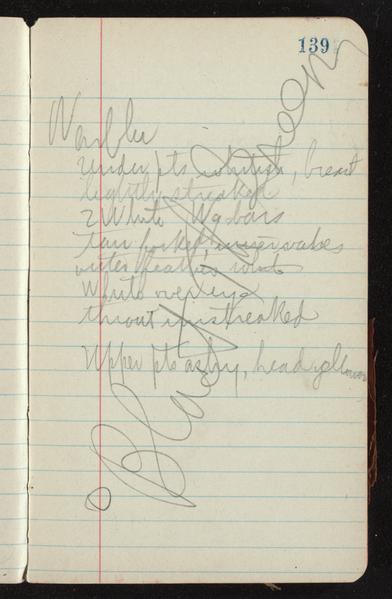 139
Warbler
under pts whitish, breast
lightly streaked
2 White Wgbars
tail forked, inner vanes
outer feathers white
White over eye
throat unstreaked
Upper pts ashy, head yellow
Green